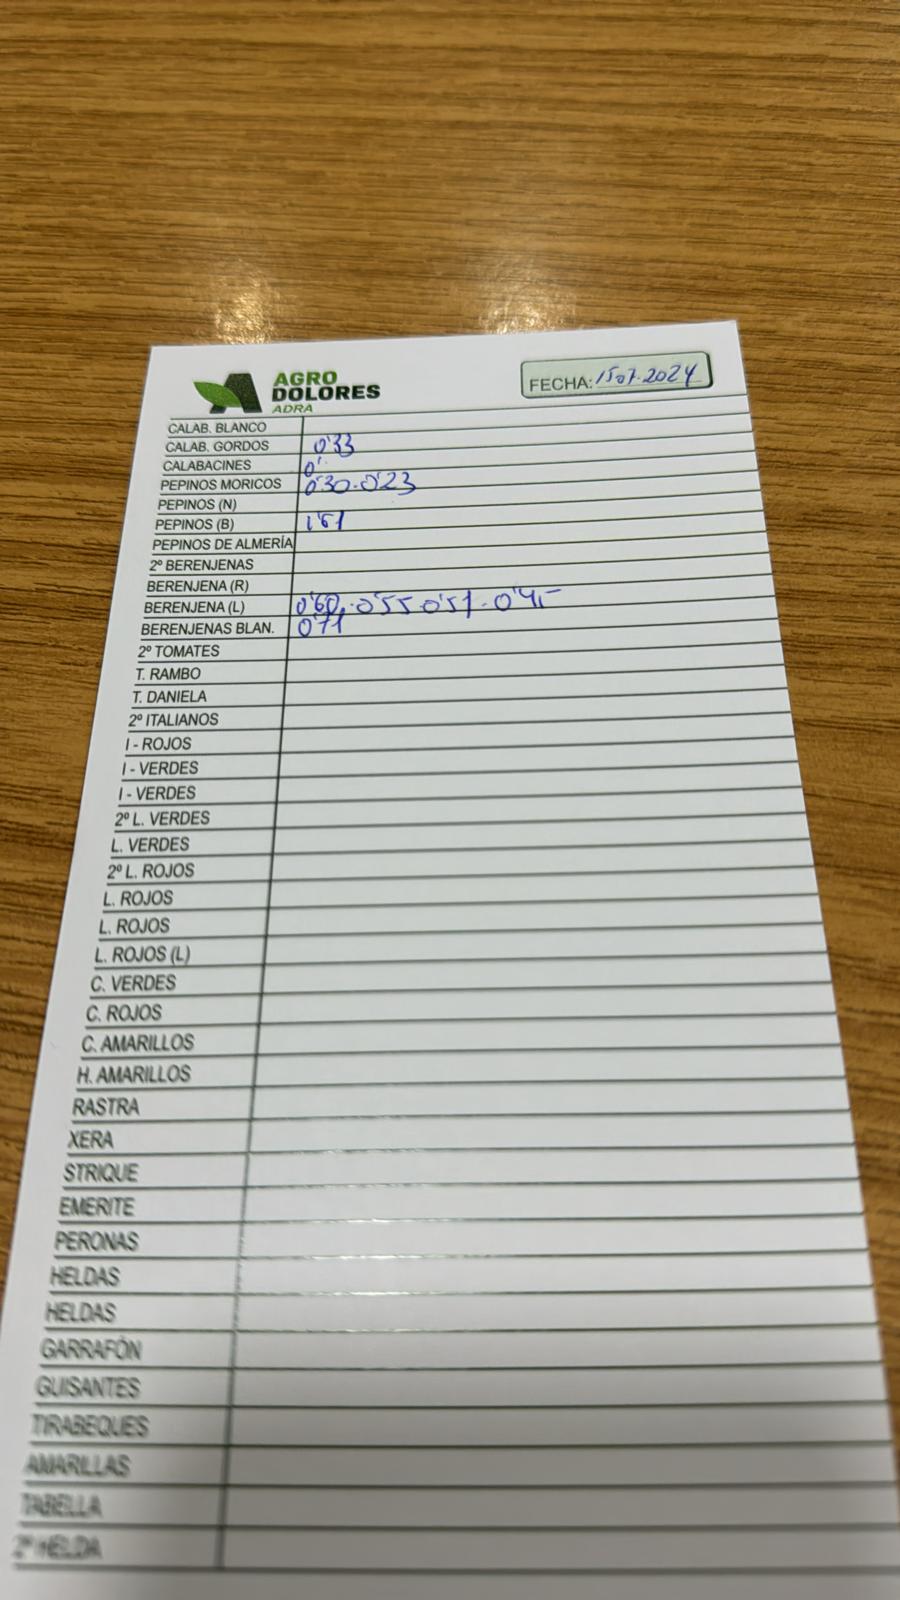 AGRO
DOLORES
ADRA
FECHA: 15 07.2024
CALAB. BLANCO
CALAB. GORDOS 0'33
CALABACINES 0'
PEPINOS MORICOS 0'30-0'23
PEPINOS (N)
PEPINOS (B)
PEPINOS DE ALMERÍA
2º BERENJENAS
BERENJENA (R)
BERENJENA (L) 0'60.-0'55 0'51-
BERENJENAS BLAN. 0'71
2º TOMATES
T. RAMBO
T. DANIELA
2º ITALIANOS
I - ROJOS
I - VERDES
I - VERDES
2º L. VERDES
L. VERDES
2º L. ROJOS
L. ROJOS
L. ROJOS
L. ROJOS (L)
C. VERDES
C. ROJOS
C. AMARILLOS
H. AMARILLOS
RASTRA
XERA
STRIQUE
EMERITE
PERONAS
HELDAS
HELDAS
GARRAFÓN
GUISANTES
TIRABEQUES
AMARILLAS
TABELLA
2º HELDA